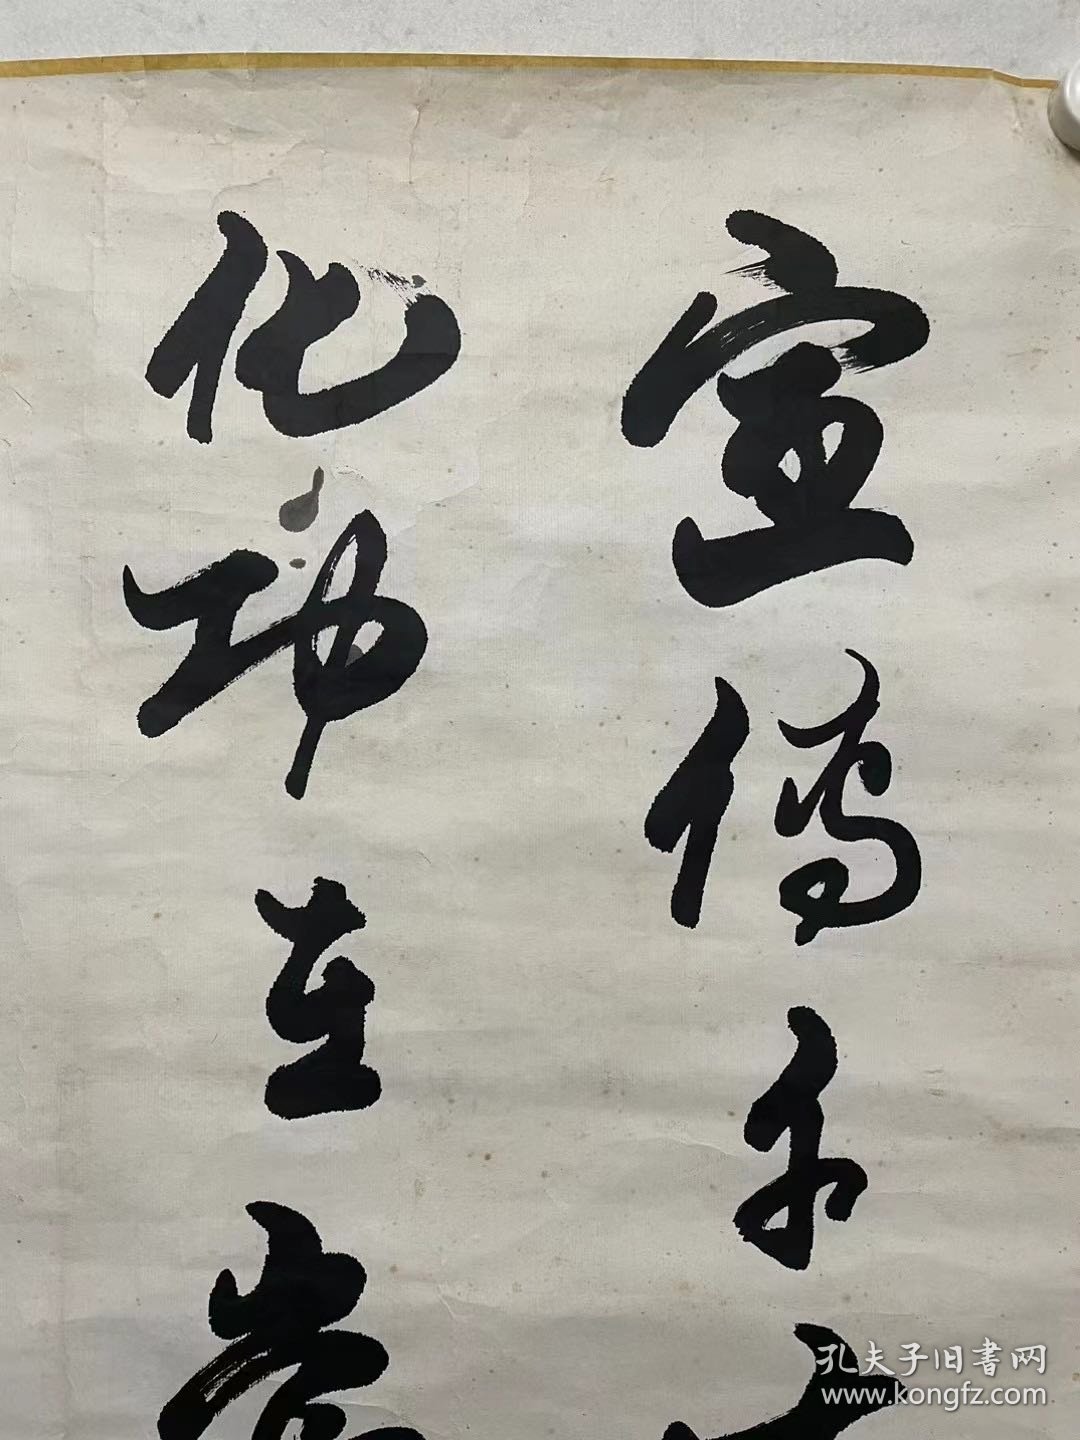 宣傳尔
化功在
孔夫子旧書网
www.kongfz.com